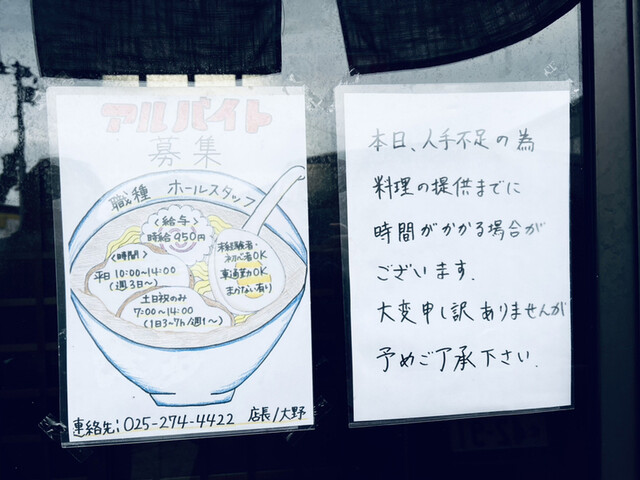 アルバイト
募集
職種 ホールスタッフ
<給与>
時給950円
<時間>
平日 10:00~14:00
(週3日~)
土日祝のみ
7:00~14:00
(1日3~7h/週1~)
未経験者・
初心者OK
車通勤OK
まかない有り
連絡先:025-274-4422 店長/大野
本日、人手不足の為
料理の提供までに
時間がかかる場合が
ございます.
大変申し訳ありませんが
予めご了承下さい.